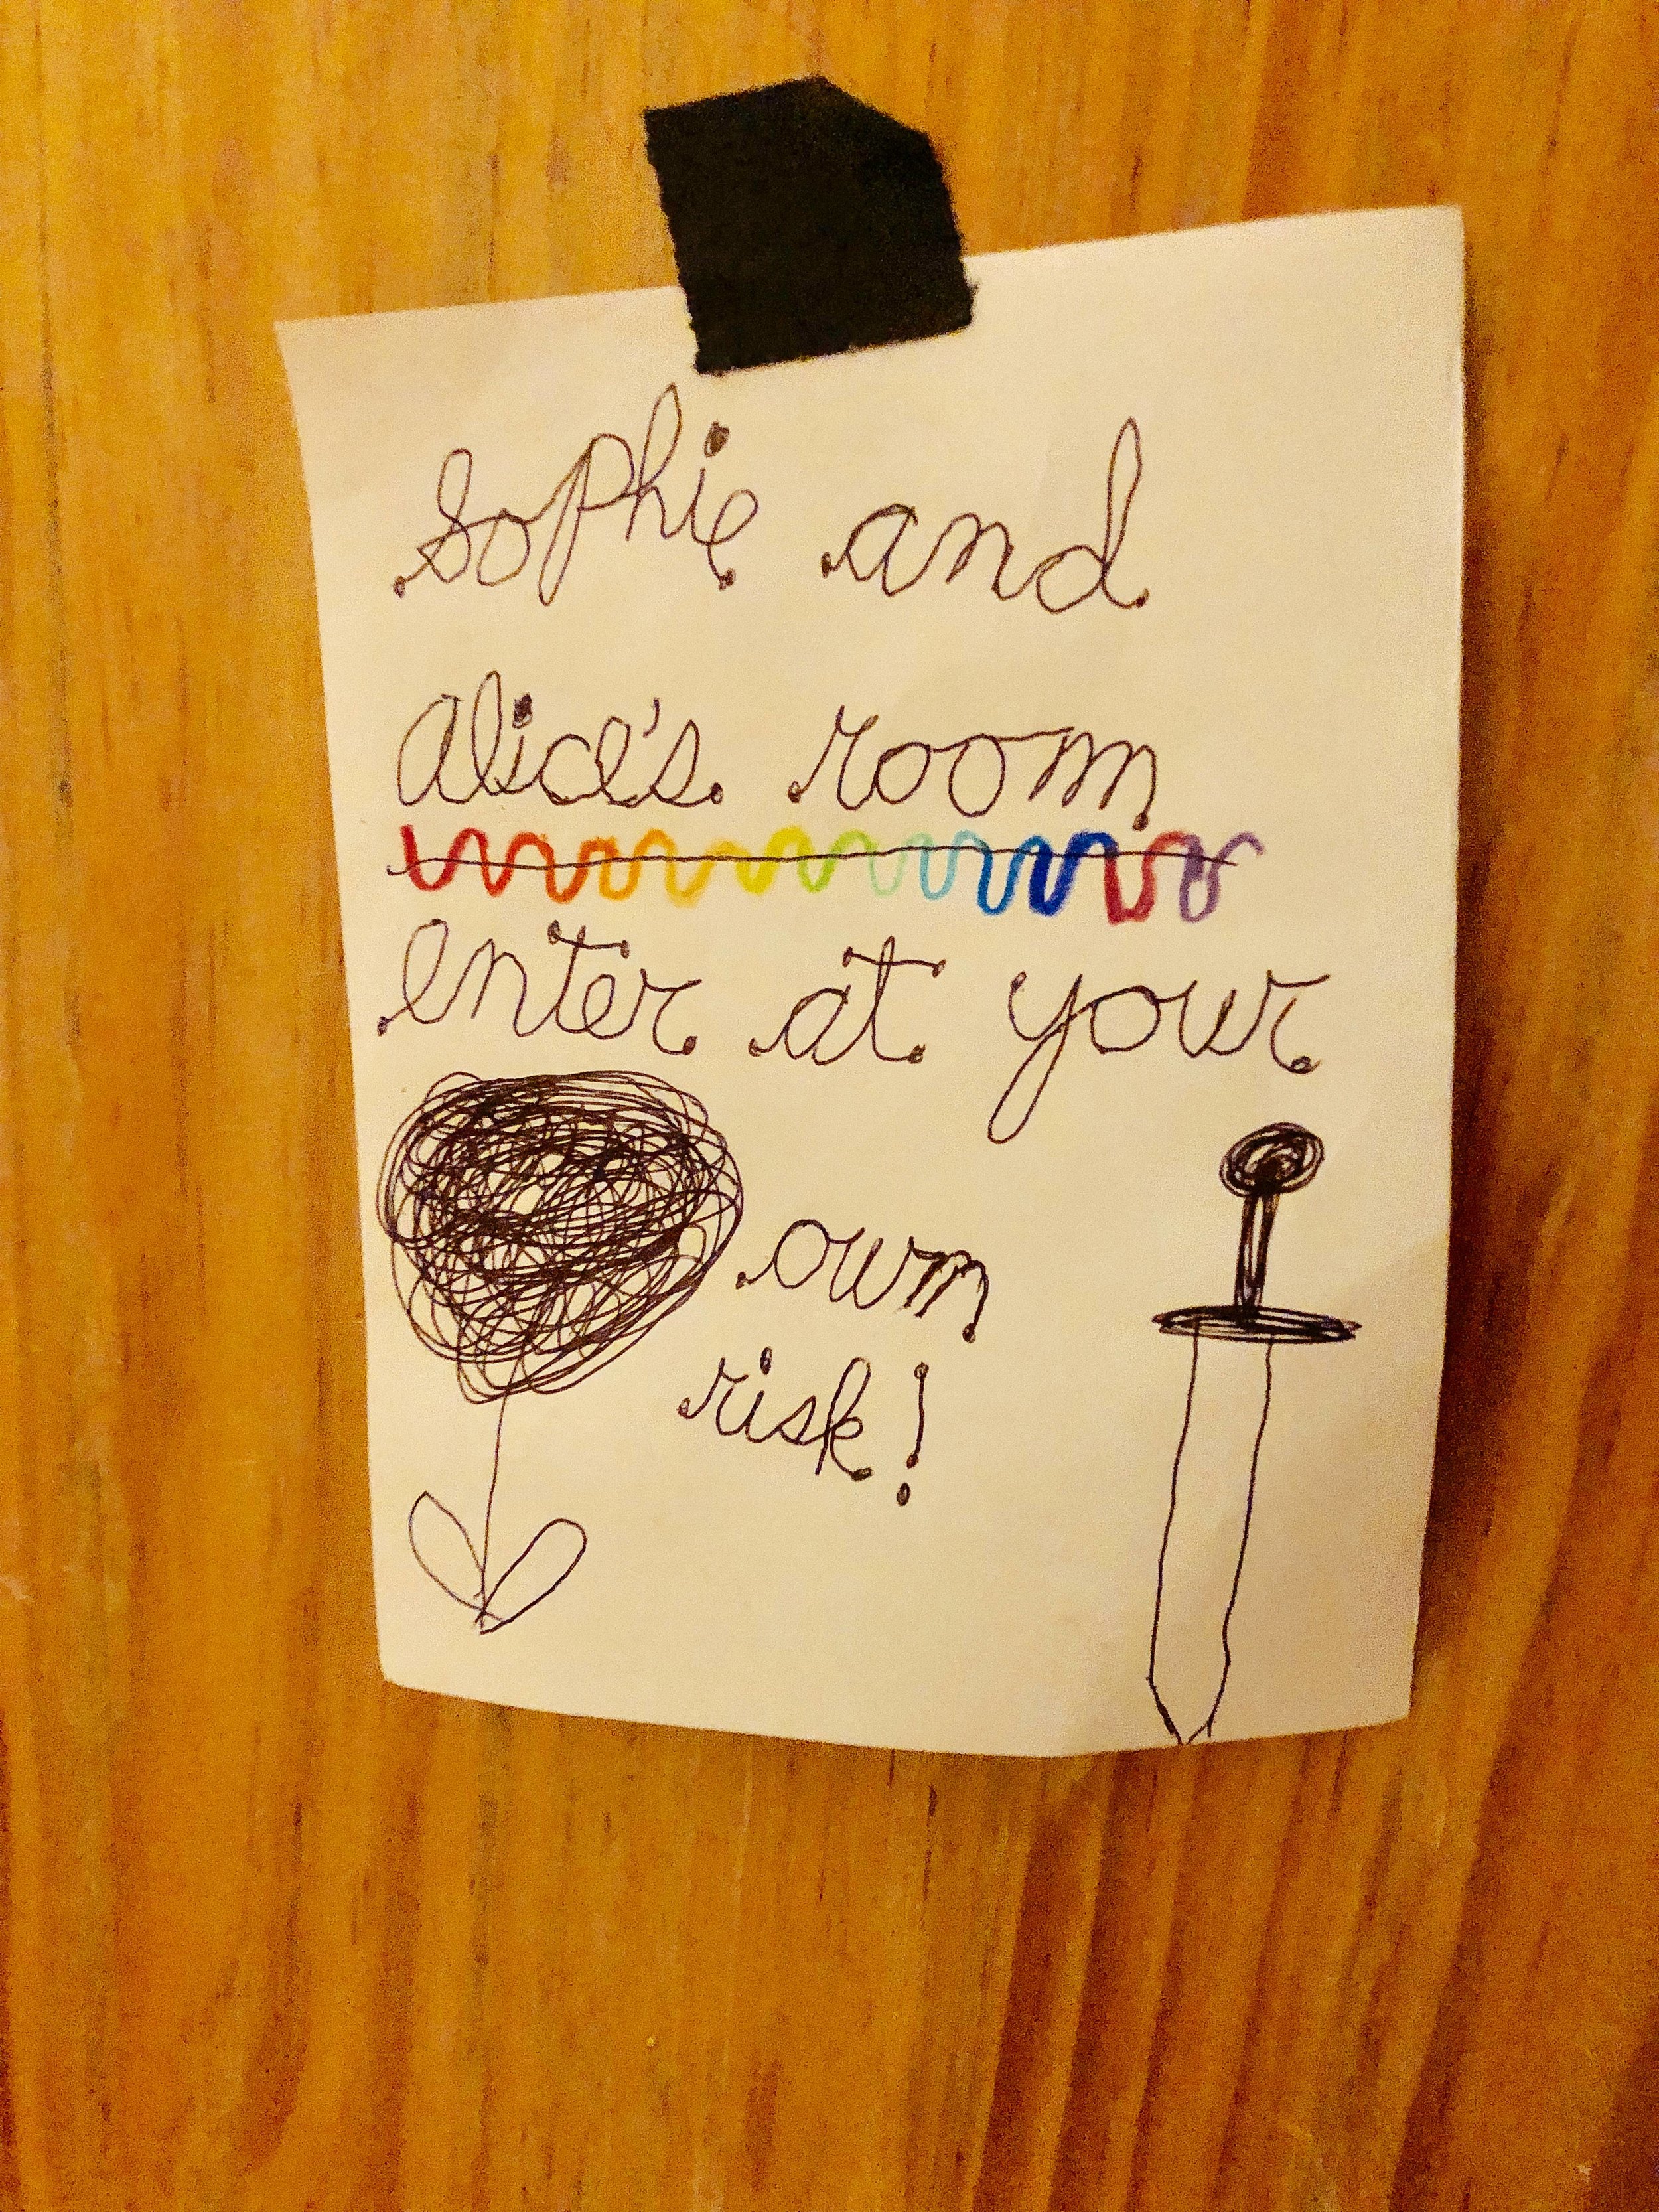 Sophie and
Alice's room
enter at your
own
risk!